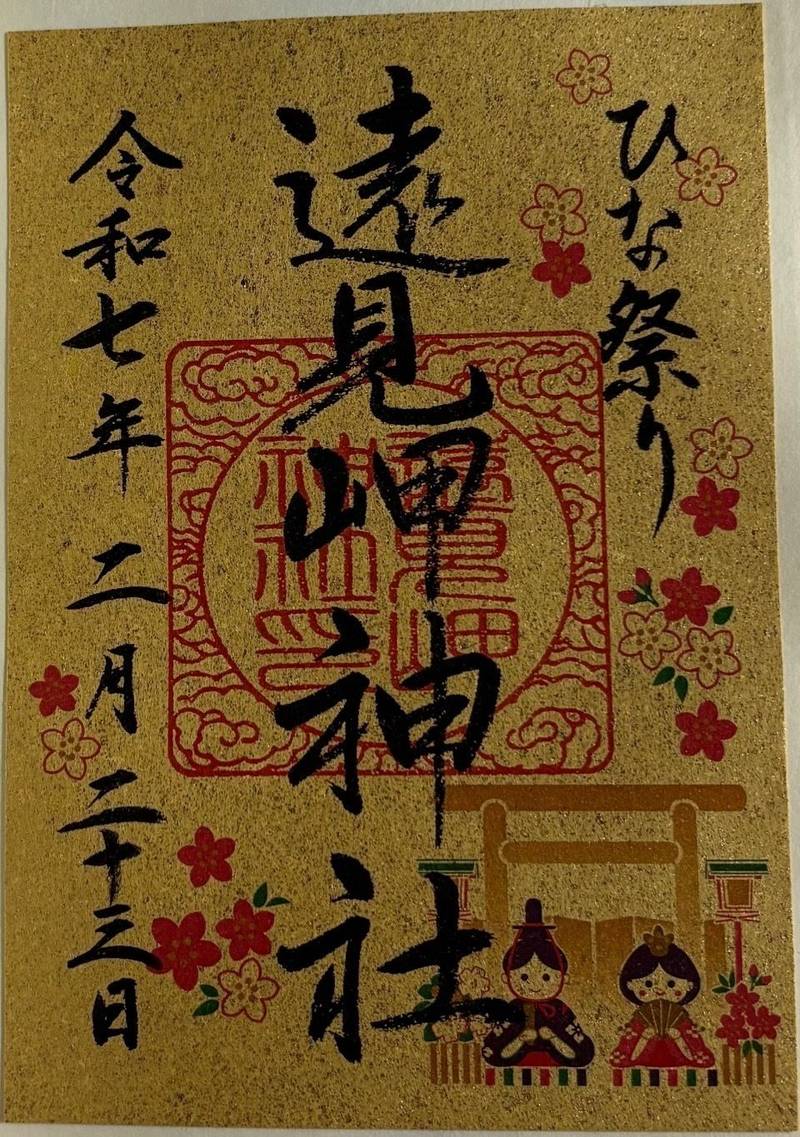 ひな祭り
遠見岬神社
遠見岬
神社印
令和七年 二月 二十三日